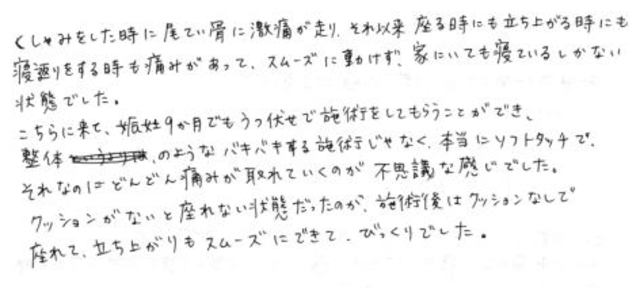 くしゃみをした時に尾てい骨に激痛が走り、それ以来 座る時にも立ち上がる時にも
寝返りをする時も痛みがあって、スムーズに動けず、家にいても寝ているしかない
状態でした。
こちらに来て、妊娠9か月でもうつ伏せで施術をしてもらうことができ、
整体のようなバキバキする施術じゃなく、本当にソフトタッチで、
それなのにどんどん痛みが取れていくのが不思議な感じでした。
クッションがないと座れない状態だったのが、施術後はクッションなしで
座れて、立ち上がりもスムーズにできて、びっくりでした。